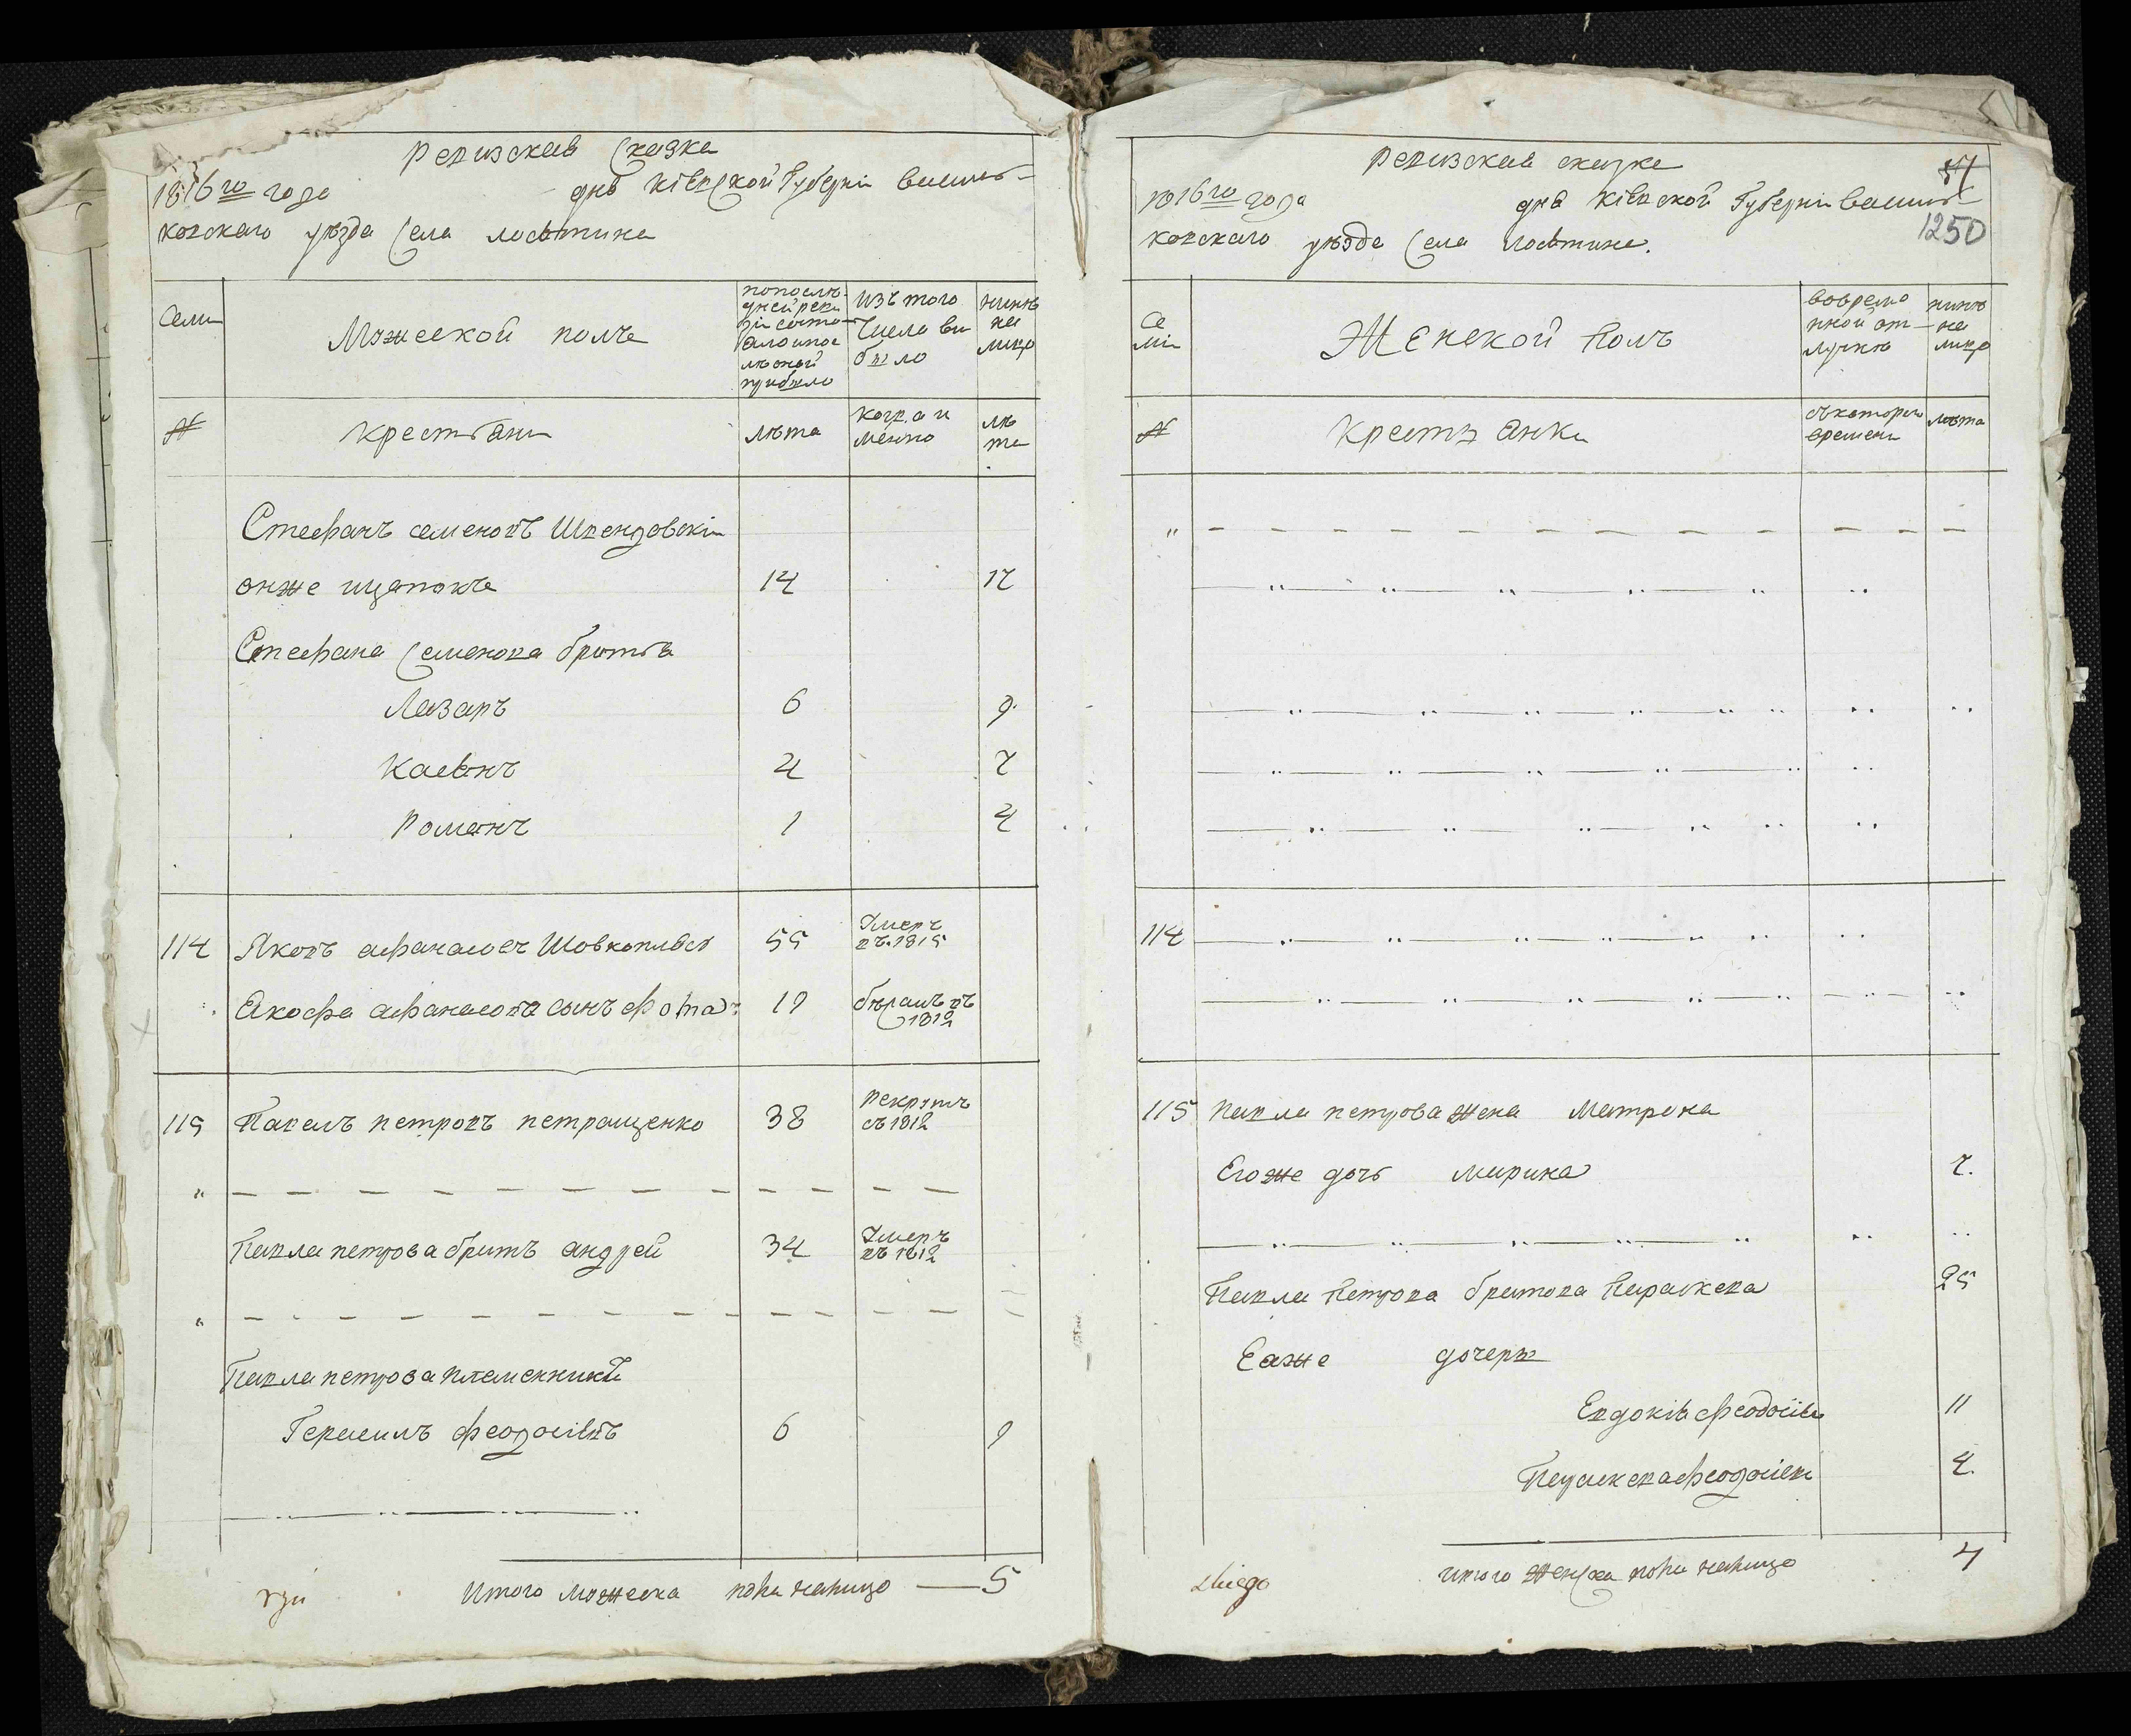 Ревизская Сказка
1816го года дня Кіевской Губерніи Василь-
ковскаго уѣзда Села лосятина
Семи
Мужеской полъ
попослѣ-
дней реви
зіи состо-
яло и пос
лѣ оной
прибыло
изъ того
Числа ви
было
нинѣ
на
лицо
№
крестьяни
лѣта
когда и
менно
лѣ
та
Стефанъ семеновъ Швендовскій
онже ицапокъ 14 17
Стефана Семенова братья
Лазаръ 6 9
Касянъ 4 7
Романъ 1 4
114 Яковъ афанасіевъ Шовкоплясъ 55 Умеръ въ 1815
Якова афанасіева сынъ фома 19 бѣгашъ въ 1812
115 Павелъ петровъ петращенко 38 рекрутъ съ 1812
Павла петрова братъ андрей 34 Умеръ въ 1812
Павла петрова племенникъ
Герасимъ феодосіевъ 6 9
при
Итого мужеска пола налицо — 5
Ревизская сказка
1816го года дня Кіевской Губерніи Василь
ковскаго уѣзда Села лосятина.
1250
Се
міи
Женской полъ
вовреме
нной от-
лучкѣ
нинѣ
на
лицо
№
Крестьянки
съкотораго
времени
лѣта
114
115 павла петрова жена Матрона
Егоже дочь марина 7.
Павла Петрова братова Параскева 25
Еяже дочери
Евдокія феодосіева 11
Параскева феодосіева 4.
итого женска пола налицо 4